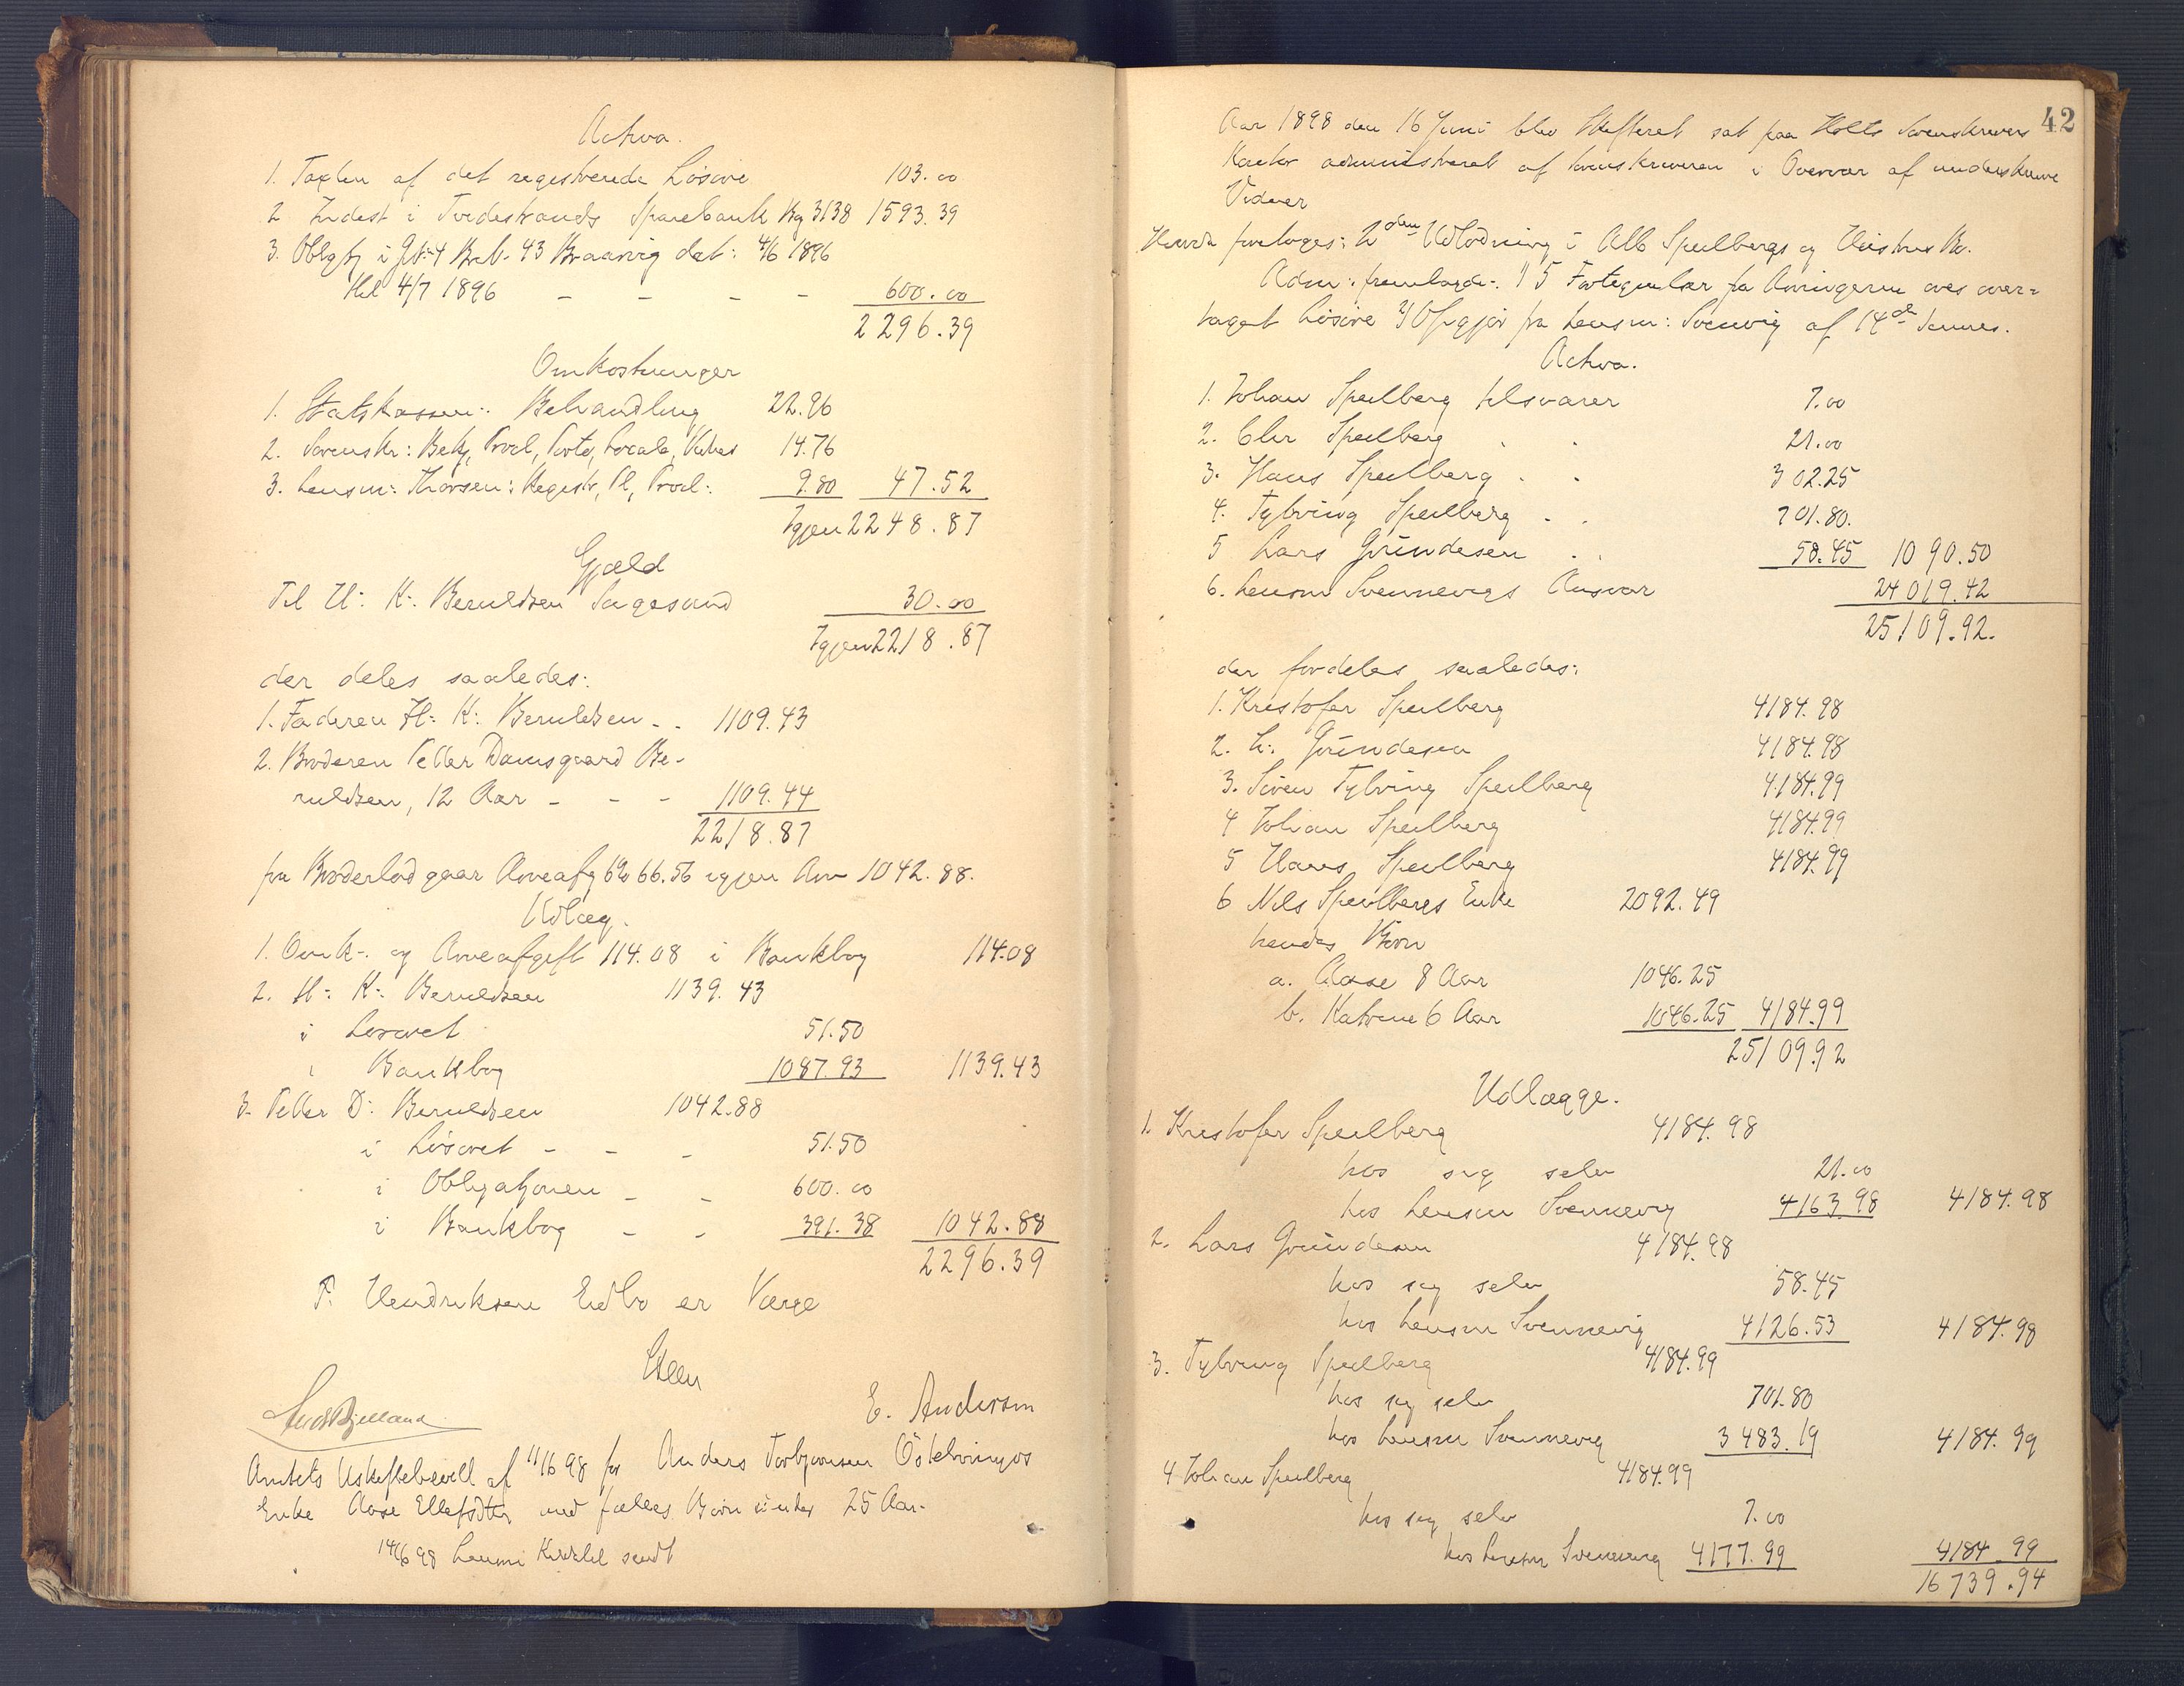 Activa.
1. Taxten af det registrerede Løsøre 103.00
2 Indest i Tvedestrands Sparebank Kg 3138 1593.39
3. Oblgtj i G№ 4 Br.№ 43 Braarvig dat: 4/6 1896
thl 4/7 1896 - - - - 600.00
2296.39
Omkostninger
1. Statskassen: Behandling 22.96
2. Sorenskr: Bekj, Procl, Porto, Locale, Vidner 14.76
3. Lensm: Thorsen: Registr, Pl, Procl: 9.80 47.52
Igjen 2248.87
Gjæld
Til H: K: Beruldsen Sagesund 30.00
Igjen 2218.87
der deles saaledes:
1. Faderen H: K: Beruldsen - - 1109.43
2. Broderen Peder Damsgaard Be-
ruldsen, 12 Aar - - - 1109.44
2218.87
fra Broderlod gaar Arveafg 6% 66.56 igjen Arv 1042.88.
Udlæg.
1. Omk: og Arveafgift 114.08 i Bankbog 114.08
2. H: K: Beruldsen 1139.43
i Løsøret 51.50
i Bankbog 1087.93 1139.43
3. Peder D: Beruldsen 1042.88
i Løsøret - - - 51.50
i Obligationen - - 600.00
i Bankbog - - 391.38 1042.88
2296.39
F. Hendriksen Eidbo er Værge
Steen
E. Anderson
Amtets Uskiftebevill af 11/6 98 for Anders Torbjørnsen Østebrings
Enke Aase Ellefsdtter med fælles Børn under 25 Aar.
14/6 98 Lensm sendt
42
Aar 1898 den 16 Juni blev Skifteret sat paa Holts Sorenskrivers
Kontor administreret af Sorenskriveren i Overvær af underskrevne
Vidner
Hvorda foretoges: 2den Udlodning i Alb Speilbergs og Hustrus Bo.
Adm: fremlagde: 1) 5 Fortegnelser fra Arvingerne over over-
taget Løsøre 2) Opgjør fra Lensm: Svennevig af 14de dennes.
Activa.
1. Johan Speilberg tilsvarer 7.00
2. Chr Speilberg . . 21.00
3. Hans Speilberg . . 302.25
4. Tylving Speilberg . . 701.80.
5 Lars Gründesen . . 58.45 1090.50
6. Lensm Svennevigs Ansvar 24019.42
25109.92.
der fordeles saaledes:
1. Kristofer Speilberg 4184.98
2. L: Gründesen 4184.98
3. Søren Tylving Speilberg 4184.99
4 Johan Speilberg 4184.99
5 Hans Speilberg 4184.99
6 Nils Speilbergs Enke 2092.49
hendes Børn
a. Aase 8 Aar 1046.25
b. Katrine 6 Aar 1046.25 4184.99
25109.92
Udlægge.
1. Kristofer Speilberg 4184.98
hos sig selv 21.00
hos Lensm Svennevig 4163.98 4184.98
2. Lars Gründesen 4184.98
hos sig selv 58.45
hos Lensm Svennevig 4126.53 4184.98
3. Tylving Speilberg 4184.99
hos sig selv 701.80
hos Lensm Svennevig 3483.19 4184.99
4 Johan Speilberg 4184.99
hos sig selv 7.00
hos Lensm Svennevig 4177.99 4184.99
16739.94